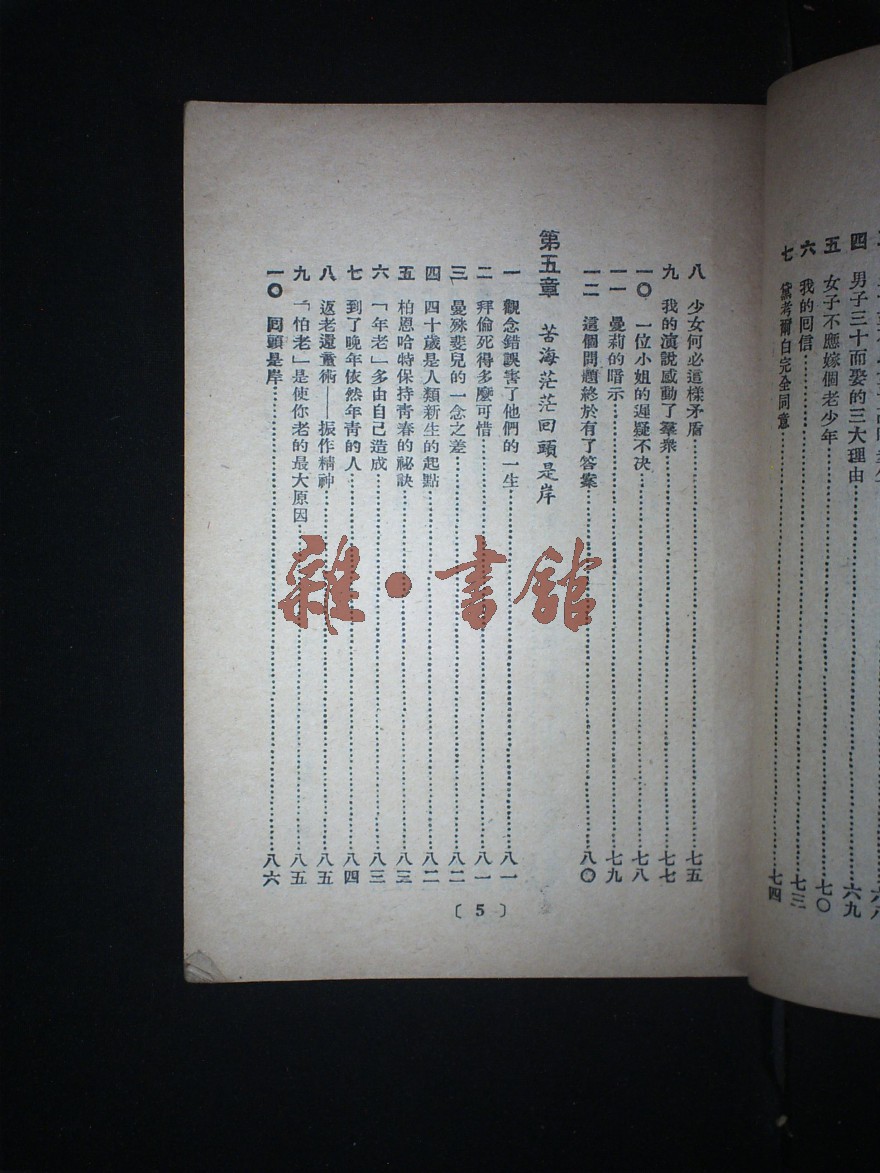 四 男子三十而娶的三大理由……六九
五 女子不應嫁個老少年……七〇
六 我的囘信……七三
七 黛考爾白完全同意……七四
八 少女何必這樣矛盾……七五
九 我的演說感動了羣衆……七七
一〇 一位小姐的遲疑不決……七八
一一 曼莉的暗示……七九
一二 這個問題終於有了答案……八〇
第五章 苦海茫茫回頭是岸
一 觀念錯誤害了他們的一生……八一
二 拜倫死得多麼可惜……八一
三 曼殊斐兒的一念之差……八二
四 四十歲是人類新生的起點……八二
五 柏恩哈特保持青春的祕訣……八三
六 「年老」多由自己造成……八三
七 到了晚年依然年青的人……八四
八 返老還童術——振作精神……八五
九 「怕老」是使你老的最大原因……八五
一〇 囘頭是岸……八六
〔5〕
雜·書館